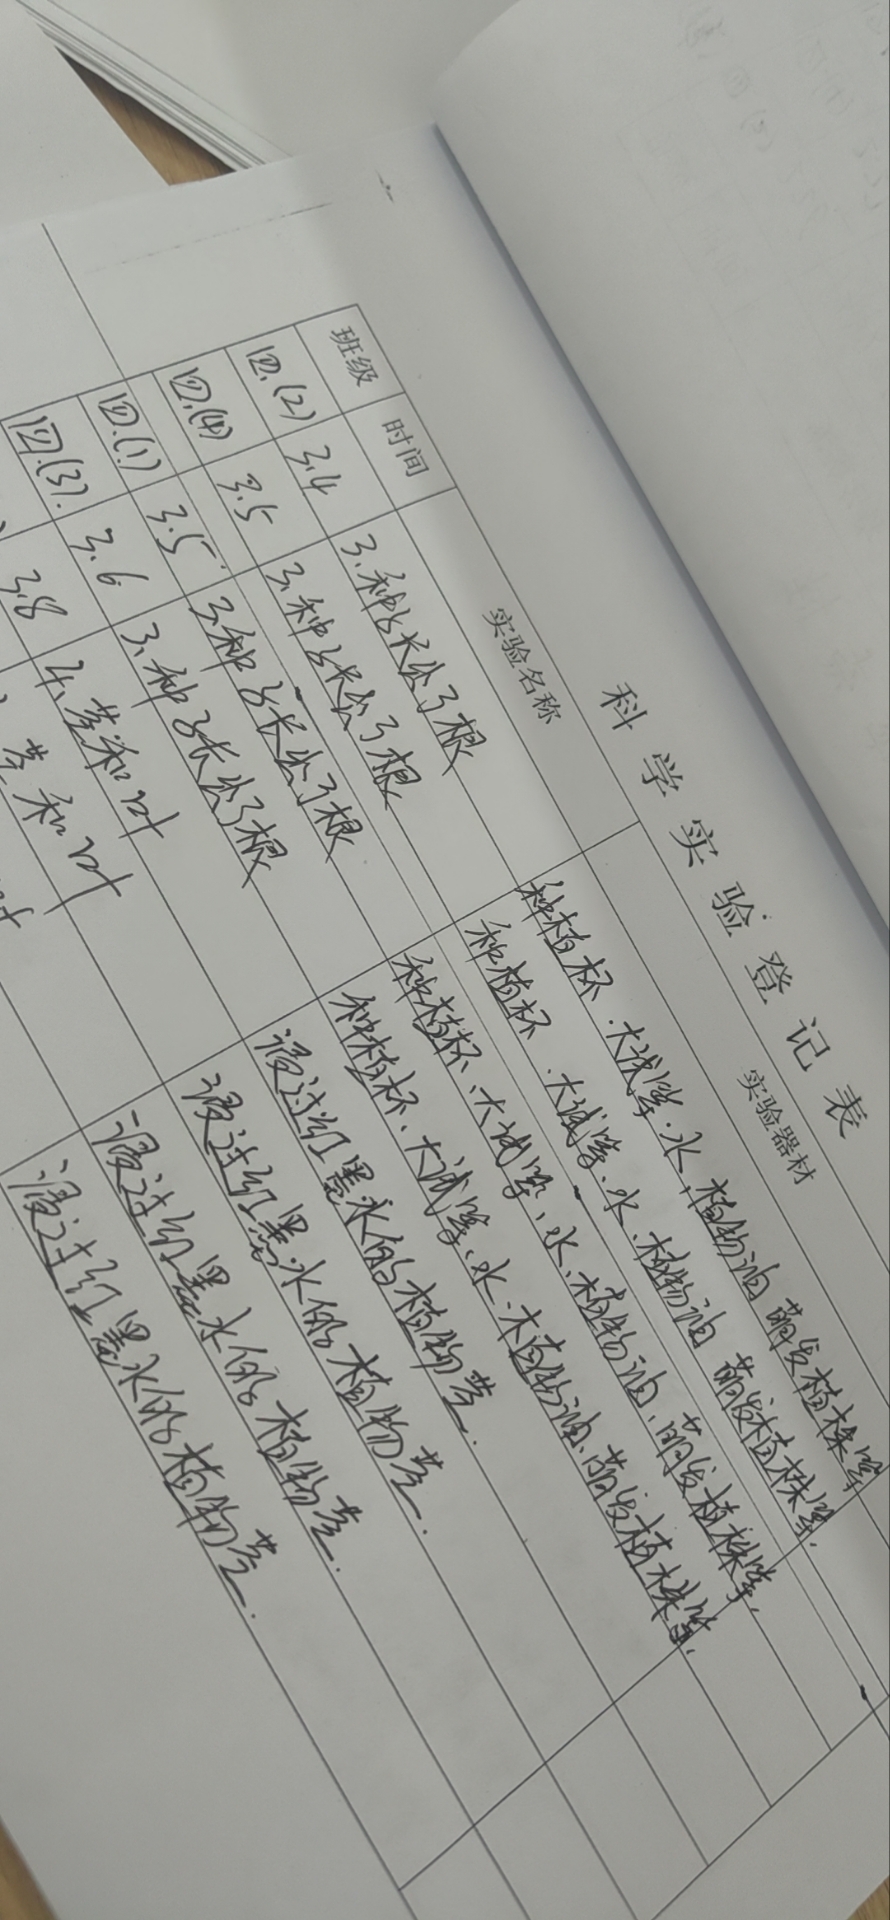 科学实验登记表
班级 时间 实验名称 实验器材
四.(2) 3.4 3.种子长出了根 种植杯.大试管.水.植物油 萌发植株等
四.(4) 3.5 3.种子长出了根 种植杯.大试管.水.植物油 萌发植株等.
四.(1) 3.5 3.种子长出了根 种植杯、大试管、水、植物油、萌发植株等.
四.(3). 3.6 3.种子长出了根 种植杯、大试管、水.植物油、萌发植株等.
3.8 4.茎和叶 浸过红墨水的植物茎.
茎和叶 浸过红墨水的植物茎.
叶 浸过红墨水的植物茎.
浸过红墨水的植物茎.